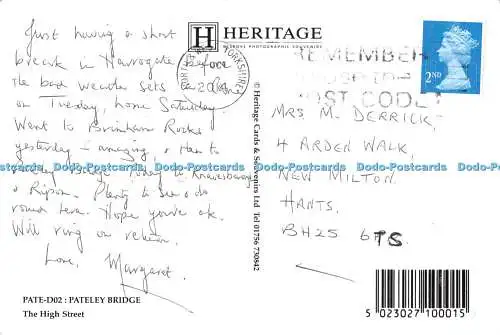 Just having a short
break in Harrogate
before
the bad weather sets in
on Tuesday, home Saturday.
Went to Brimham Rocks
yesterday - amazing, & then to
Pateley Bridge. Today to Knaresborough
& Ripon. Plenty to see & do
round here. Hope you're ok.
Will ring on return.
Love,
Margaret.
PATE-D02 : PATELEY BRIDGE
The High Street
H HERITAGE
© Heritage Cards & Souvenirs Ltd Tel 01756 730842
YORKSHIRE
REMEMBER
POST CODE
2ND
MRS M. DERRICK,
4 ARDEN WALK,
NEW MILTON.
HANTS.
BH25 6TS
5 023027 100015
Dodo-Postcards Dodo-Postcards Dodo-Postcards Dodo-Postcards Dodo-Postcards